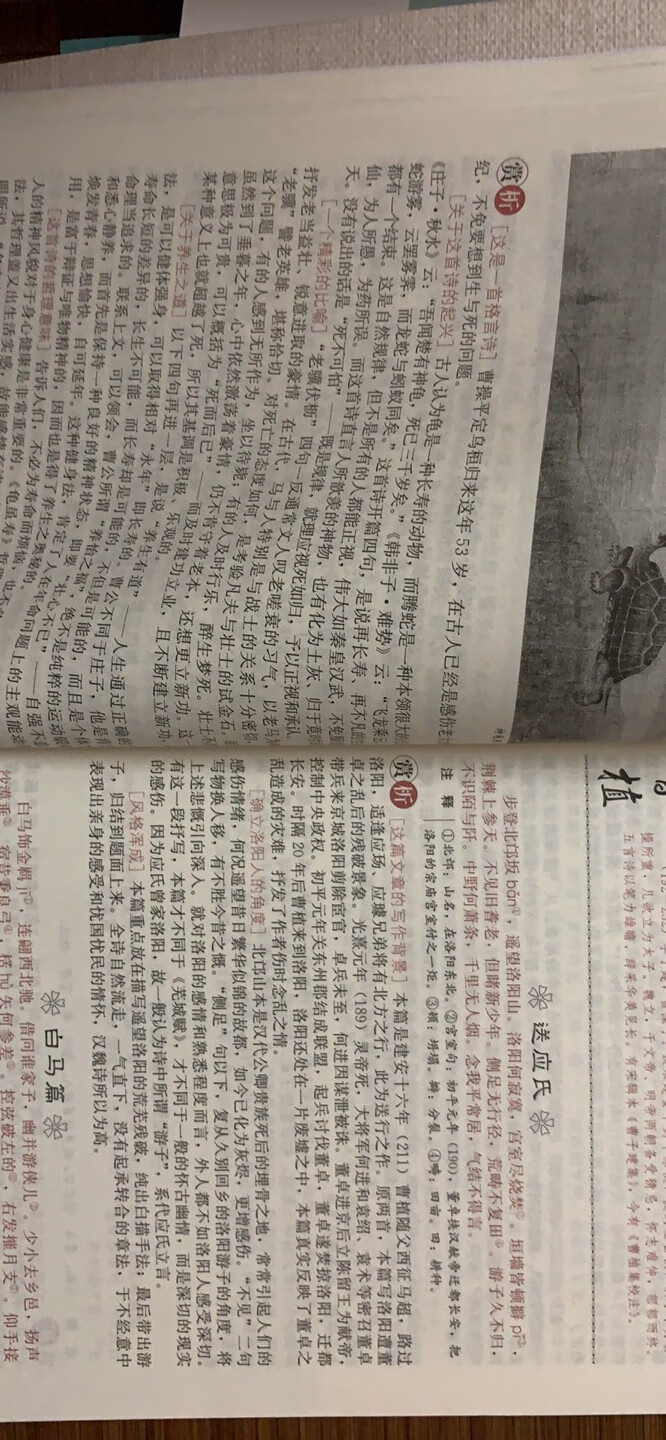 赏析 [这是一首格言诗] 曹操平定乌桓归来这年53岁，在古人已经是感伤老
纪，不免要想到生与死的问题。
[关于这首诗的起兴] 古人认为龟是一种长寿的动物，而腾蛇是一种本领很大的
《庄子·秋水》云：“吾闻楚有神龟，死已三千岁矣。”《韩非子·难势》云：“飞龙乘云
蛇游雾，云罢雾霁，而龙蛇与蚓蚁同矣。”这首诗开篇四句，是说再长寿、再不凡的
都有一个结束。这是自然规律，但不是所有的人都能正视，伟大如秦皇汉武，不免
仙，为人所愚，为药所误。而这首诗直言人所歆羡的神物，也有化为土灰、归于
天。没有说出的话是“死不可怕”——既是规律，就理应视死如归，予以正视和承认
[一个精彩的比喻] “老骥伏枥”四句一反通常文人叹老嗟衰的习气，以老
抒发老当益壮、锐意进取的豪情。在古代，马与人特别是与战士的关系十分密
“老骥”譬老英雄，堪称恰切。对死亡的态度如何，是考验凡夫与壮士的试金石，
这个问题，有的人感到无所作为，坐以待毙，有的人及时行乐，醉生梦死。壮士
虽然到了垂暮之年，心中依然激荡着豪情，仍不肯守着老本，还想更立新功。这
意思极为可贵，可以概括为“死而后已”——而及时建功立业，且不断建立新功，
某种意义上也就超越了死，所以其基调是积极、乐观的。
[关于养生之道] 以下四句再进一层，是说“养生有道”——人生通过正确的
法，是可以健体强身，可以取得相对“永年”即长寿的。曹公不同于庄子，他是
寿命长短的差异的，长生不可能，而长寿却是可能的，不但是可能的，而且是个体
命理当追求的。联系上文，可以领会，曹公所谓“养怡之福”，绝不是纯粹的运动
和悉心静养，而首先是保持一种良好的精神状态，即要“壮心不已”——自强不
焕发青春，思想愉快，自可延年。这种健身法，肯定了人在年命问题上的主观能动
用，是富于辩证与唯物精神的，因而也是得了养生之奥秘的。
[这首诗的哲理意味] 告诉人们，不必为寿命而烦恼，
人的精神风貌对于身心健康是非常重要的。《龟虽寿》
法，其哲理盖又出生活实感，故能
植
步登北邙坂bǎn①，遥望洛阳山。洛阳何寂寞，宫室尽烧焚②。垣墙皆顿擗pǐ③，
荆棘上参天。不见旧耆老，但睹新少年。侧足无行径，荒畴不复田④。游子久不归，
不识陌与阡。中野何萧条，千里无人烟。念我平常居，气结不得言。
送应氏
注释 ①北邙：山名，在洛阳东北。②宫室句：初平元年（190），董卓挟汉献帝迁都长安，把
洛阳的宗庙宫室付之一炬。③顿：坍塌。擗：分裂。④畴：田亩。田：耕种。
赏析 [这篇文章的写作背景] 本篇是建安十六年（211）曹植随父西征马超，路过
洛阳，适逢应玚、应璩兄弟将有北方之行，此为送行之作。原两首，本篇写洛阳遭董
卓之乱后的残破景象。光熹元年（189）灵帝死，大将军何进和袁绍、袁术等密召董卓
带兵来京城洛阳剪除宦官，卓兵未至，何进因谋泄被诛。董卓进京后立陈留王为献帝，
控制中央政权。初平元年关东州郡结成联盟，起兵讨伐董卓，董卓遂焚掠洛阳，迁都
长安。时隔20年后曹植来到洛阳，洛阳还处在一片废墟之中，本篇真实反映了董卓之
乱造成的灾难，抒发了作者伤时念乱之情。
[确立洛阳人的角度] 北邙山本是汉代公卿贵族死后的埋骨之地，常常引起人们的
感伤情绪，何况遥望昔日繁华似锦的故都，如今已化为灰烬，更增感伤。“不见”二句
写物换人移，有不胜今昔之慨。“侧足”句以下，复从久别回乡的洛阳游子的角度，将
上述悲慨引向深入。就对洛阳的感情和熟悉程度而言，外人都不如洛阳人感受深切。
有这一段抒写，本篇才不同于《芜城赋》，才不同于一般的怀古幽情，而是深切的现实
的感伤。因为应氏曾家洛阳，故一般认为诗中所谓“游子”，系代应氏立言。
[风格浑成] 本篇重点放在描写遥望洛阳的荒芜残破，纯出白描手法；最后带出游
子，归结到题面上来。全诗自然流走，一气直下，没有起承转合的章法，于不经意中
表现出亲身的感受和忧国忧民的情怀，汉魏诗所以为高。
白马篇
白马饰金羁jī①，连翩西北驰。借问谁家子，幽并游侠儿②。少小去乡邑，扬声
沙漠垂③。宿昔秉良弓④，楛hù矢何参差⑤。控弦破左的⑥，右发摧月支⑦。仰手接